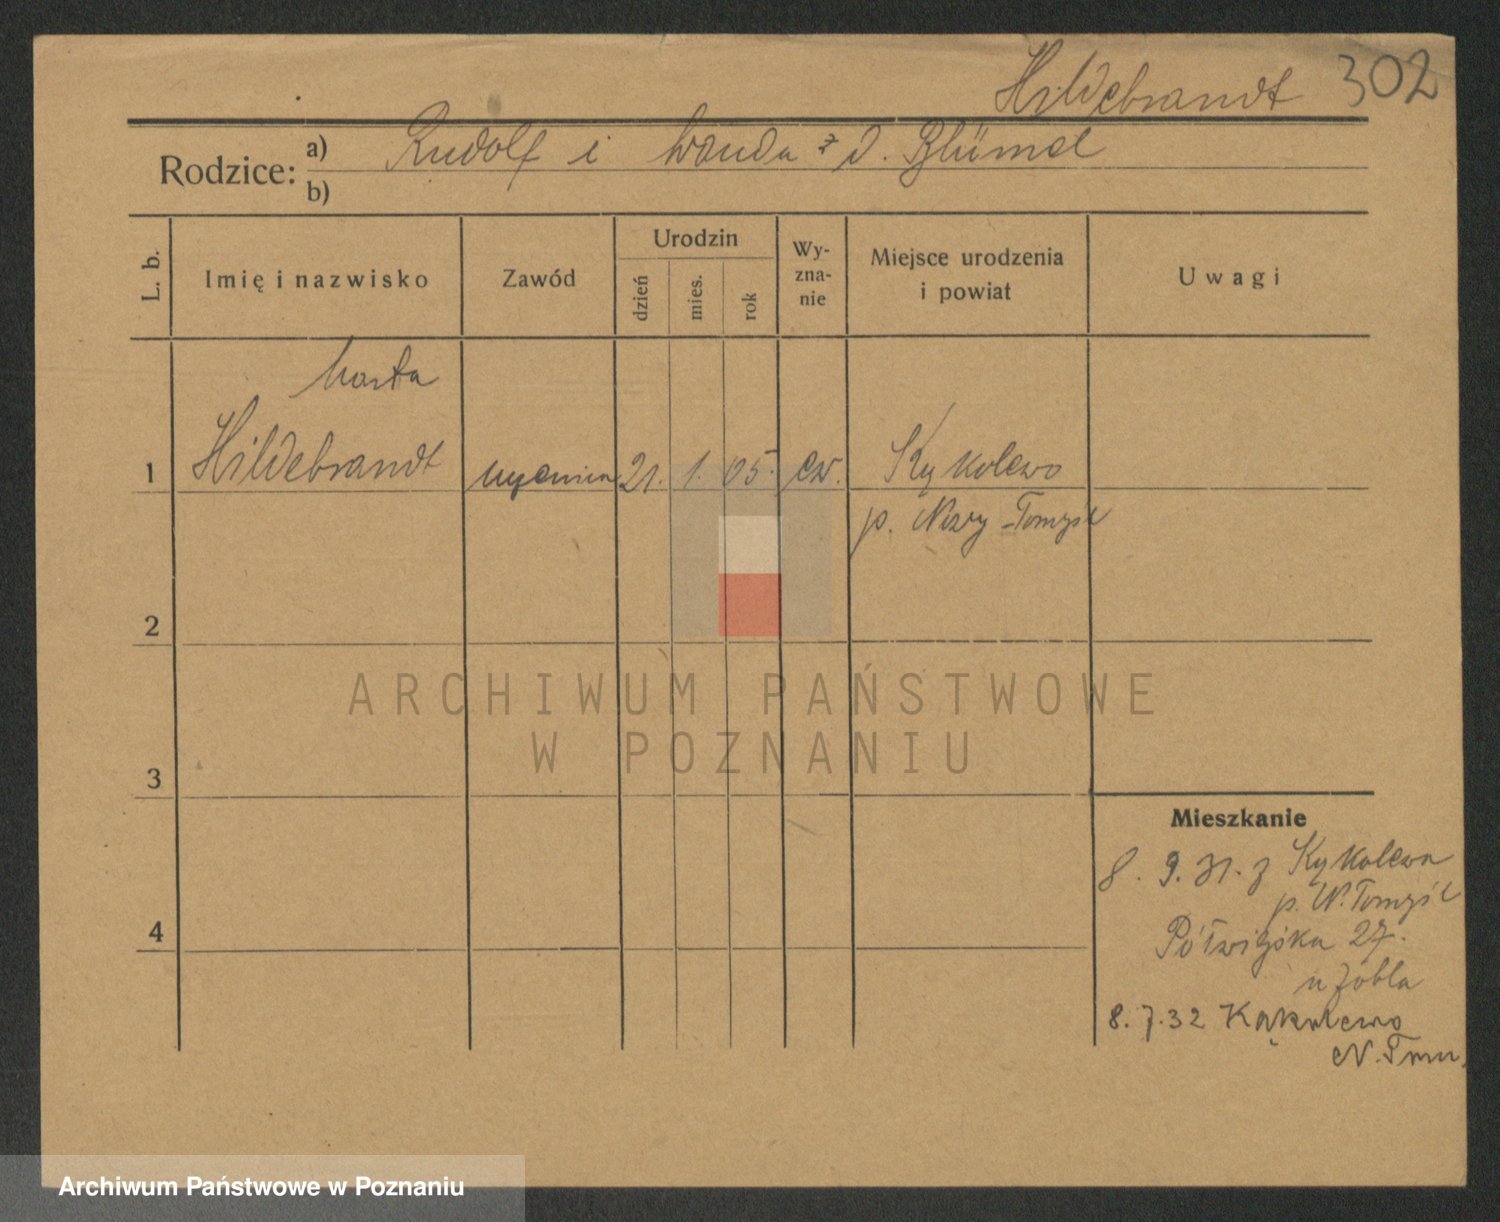 Hildebrandt 302
Rodzice: a) Rudolf i Wanda z d. Blümel
b)
L. b. Imię i nazwisko Zawód Urodzin dzień mies. rok Wyznanie Miejsce urodzenia i powiat Uwagi
Marta
1 Hildebrandt 21. 1. 05. ew. Kąkolewo
p. Nowy-Tomyśl
2
ARCHIWUM PAŃSTWOWE
W POZNANIU
3
Mieszkanie
8. 9. 31. z Kąkolewa
p. N. Tomyśl
4
Półwiejska 27.
u Zobla
8.7.32 Kąkolewo
N. Tom
Archiwum Państwowe w Poznaniu